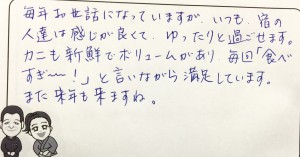 毎年お世話になっていますが、いつも、宿の
人達は感じが良くて、ゆったりと過ごせます。
カニも新鮮でボリュームがあり、毎回「食べ
すぎ〜!」と言いながら満足しています。
また来年も来ますね。